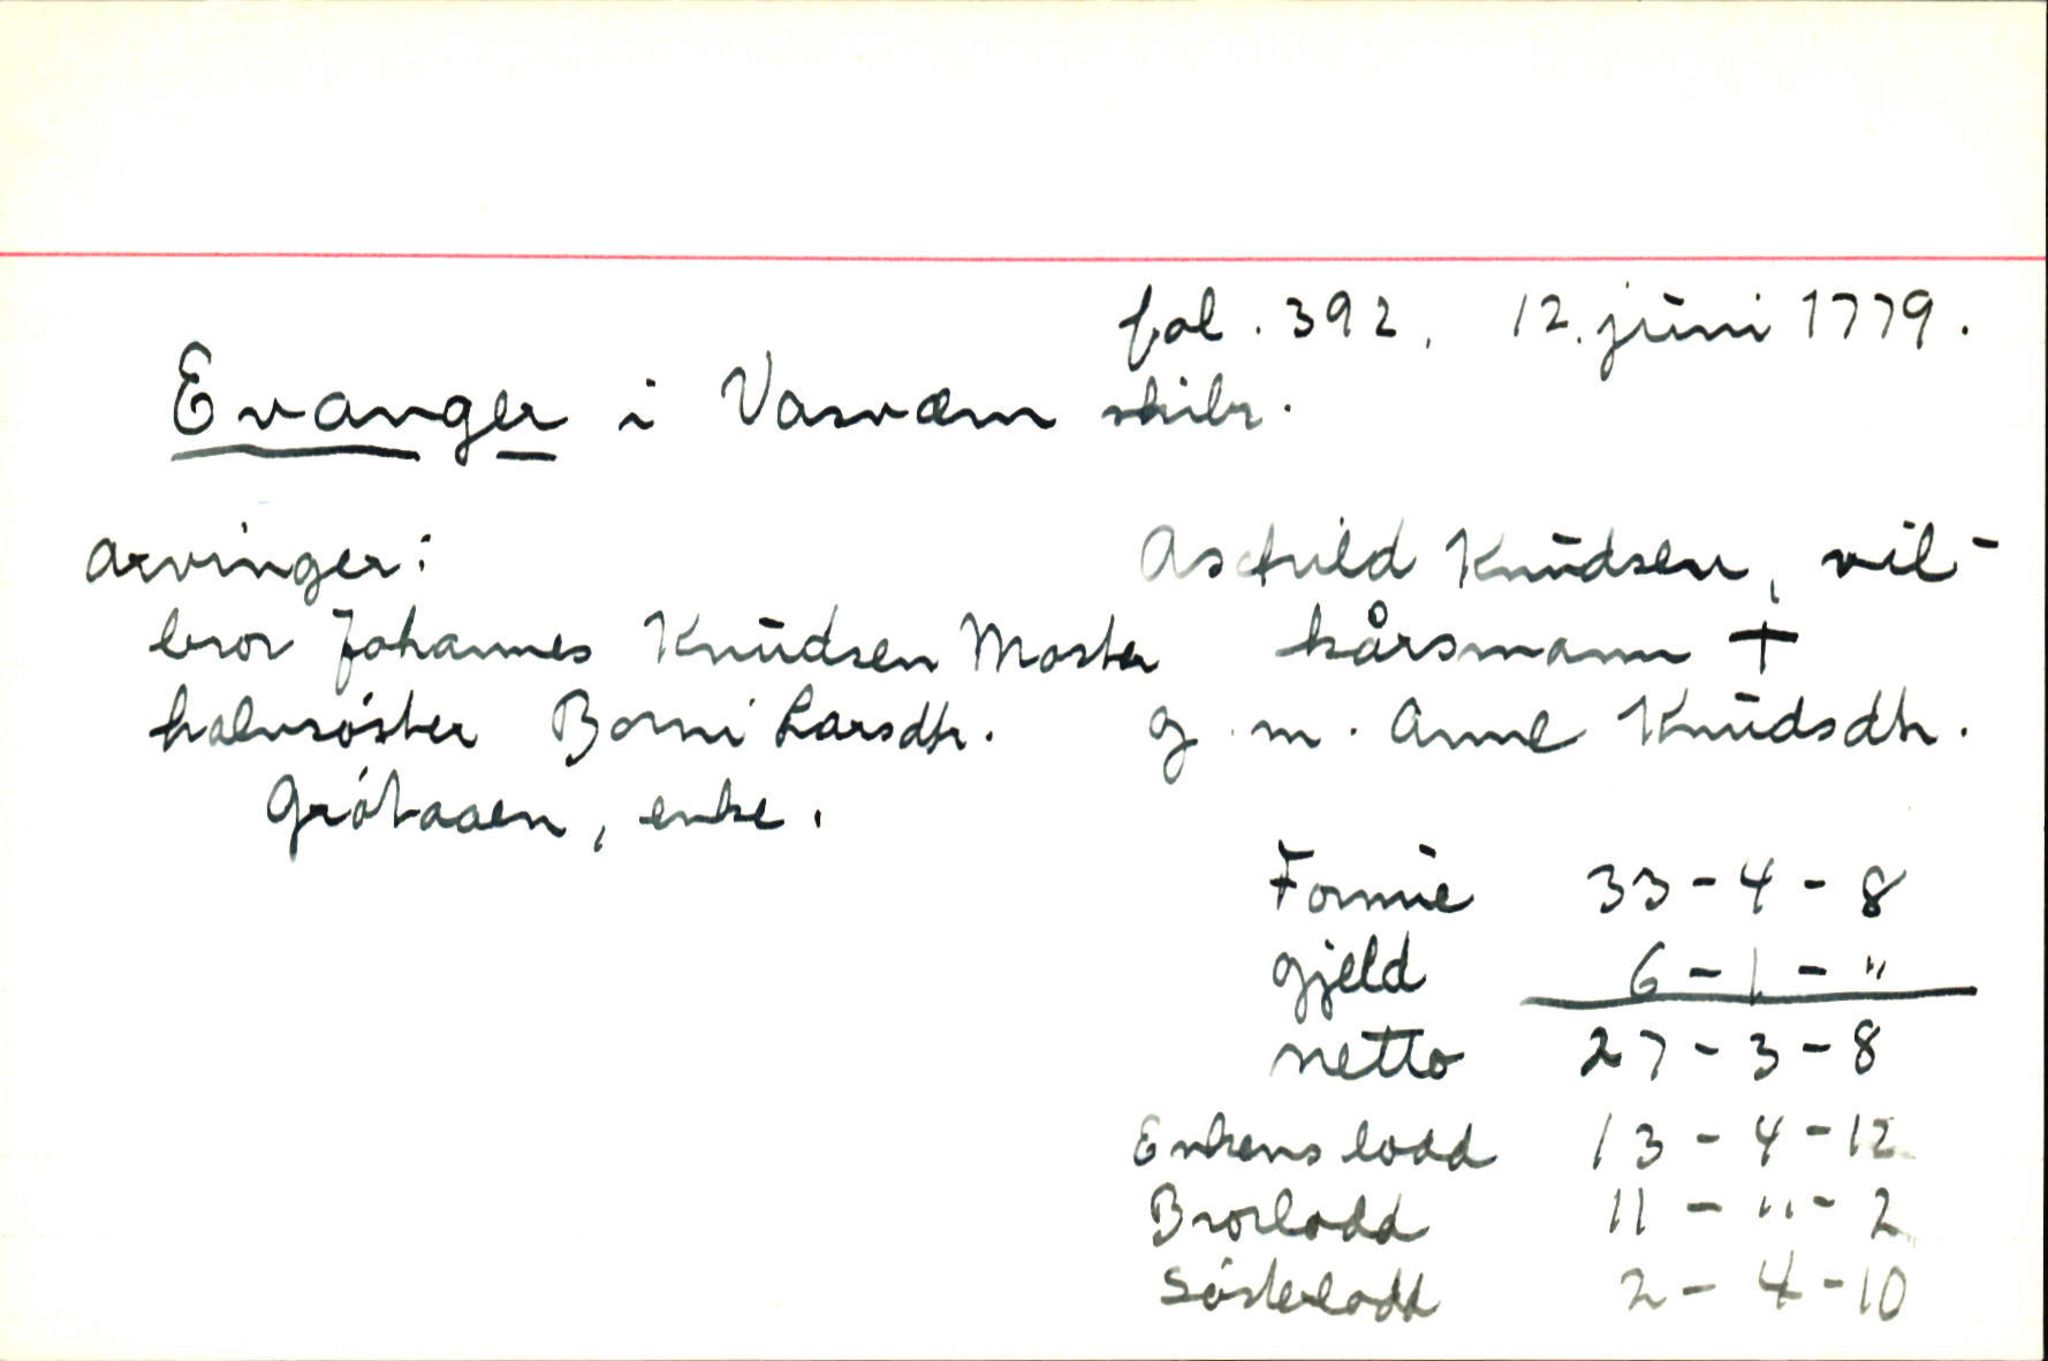 fol. 392, 12. juni 1779.
Evanger i Vasværn skibr.
Arvinger:
bror Johannes Knudsen Moster
halvsøster Borni Larsdtr.
Grøtaaen, enke.
Knudsen, vil-
kårsmann †
g. m. Anne Knudsdtr.
Formue 33-4-8
gjeld 6-1-"
netto 27-3-8
Enkens lodd 13-4-12
Brorlodd 11-"-2
Søsterlodd 2-4-10